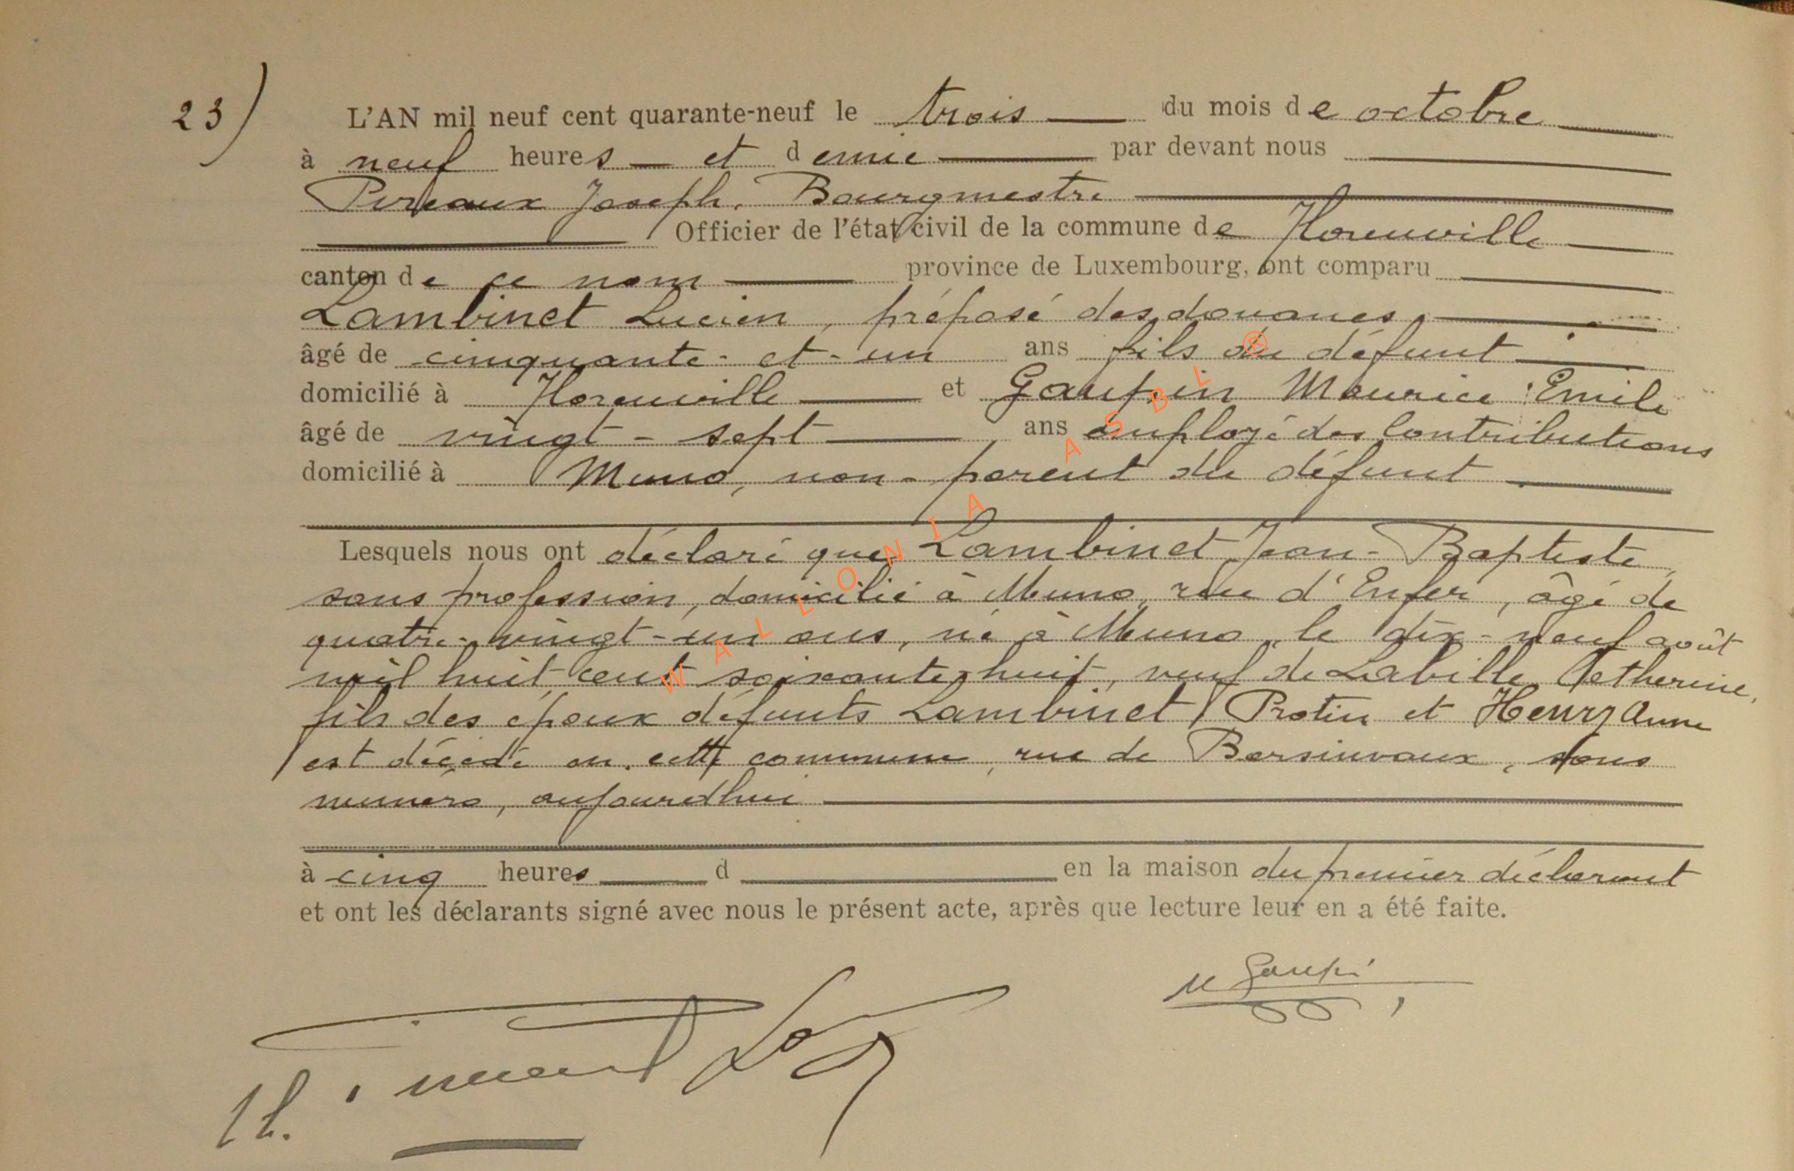 23) L'AN mil neuf cent quarante-neuf le trois du mois de octobre
à neuf heures et demie par devant nous
Pireaux Joseph, Bourgmestre
Officier de l'état civil de la commune de Florenville
canton de ce nom province de Luxembourg, ont comparu
Lambinet Lucien, préposé des douanes,
âgé de cinquante-et-un ans fils du défunt
domicilié à Florenville et Gaupin Maurice Emile
âgé de vingt-sept ans employé des Contributions
domicilié à Muno, non-parent du défunt
Lesquels nous ont déclaré que Lambinet Jean-Baptiste,
sans profession, domicilié à Muno, rue d'Enfer, âgé de
quatre-vingt-un ans, né à Muno, le dix-neuf août
mil huit cent soixante-huit, veuf de Labille Catherine,
fils des époux défunts Lambinet Protin et Henry Anne
est décédé en cette commune, rue de Bersinvaux, sans
numéro, aujourd'hui
à cinq heures d en la maison du premier déclarant
et ont les déclarants signé avec nous le présent acte, après que lecture leur en a été faite.
M Gaupin
WALLONIA ASBL ®